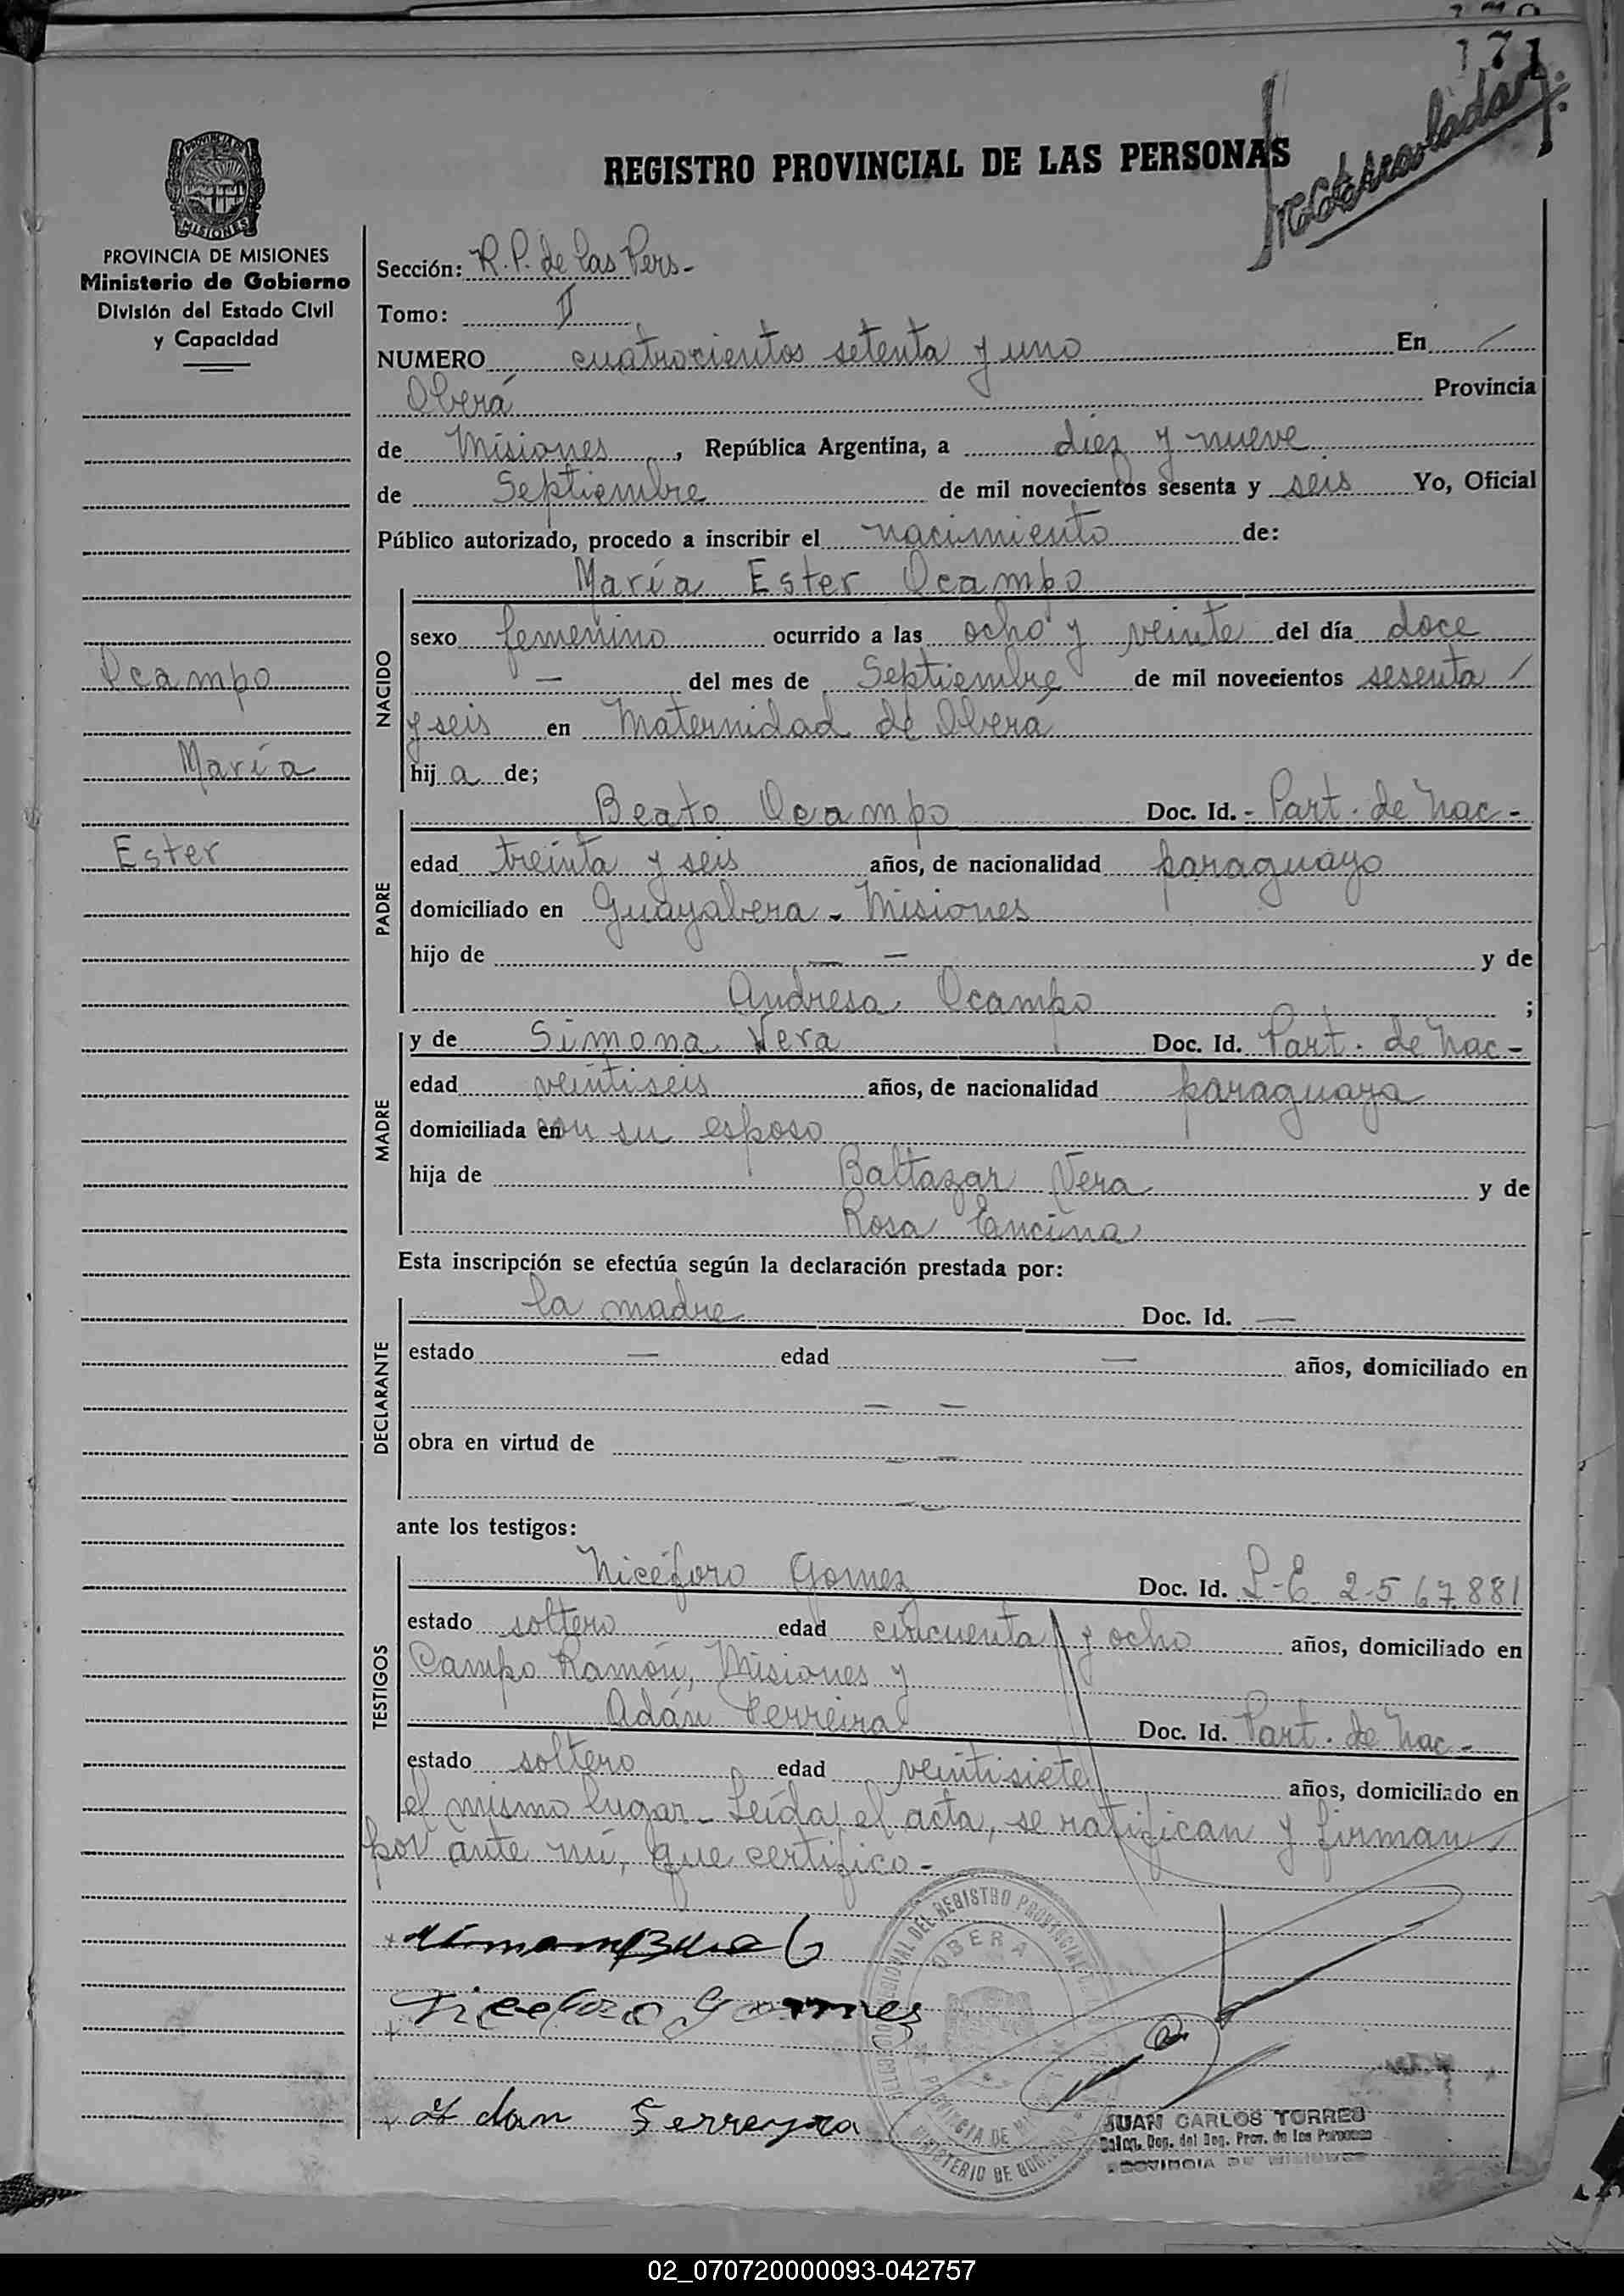 171
REGISTRO PROVINCIAL DE LAS PERSONAS
PROVINCIA DE
MISIONES
PROVINCIA DE MISIONES
Ministerio de Gobierno
División del Estado Civil
y Capacidad
Ocampo
María
Ester
Sección: R. P. de las Pers-
Tomo: II
NUMERO cuatrocientos setenta y uno En /
Oberá Provincia
de Misiones, República Argentina, a diez y nueve
de Septiembre de mil novecientos sesenta y seis Yo, Oficial
Público autorizado, procedo a inscribir el nacimiento de:
María Ester Ocampo
NACIDO
sexo femenino ocurrido a las ocho y veinte del día doce
— del mes de Septiembre de mil novecientos sesenta /
y seis en Maternidad de Oberá
hija de;
PADRE
Beato Ocampo Doc. Id. - Part. de Nac-
edad treinta y seis años, de nacionalidad paraguayo
domiciliado en Guayabera - Misiones
hijo de — — y de
Andresa Ocampo ;
MADRE
y de Simona Vera Doc. Id. Part. de Nac-
edad veintiseis años, de nacionalidad paraguaya
domiciliada en con su esposo
hija de Baltazar Vera y de
Rosa Encina
Esta inscripción se efectúa según la declaración prestada por:
DECLARANTE
la madre Doc. Id. —
estado — edad — años, domiciliado en
— —
obra en virtud de — —
— —
ante los testigos:
TESTIGOS
Nicéforo Gomez Doc. Id. L-E 2-567.881
estado soltero edad cincuenta y ocho años, domiciliado en
Campo Ramón, Misiones y
Adán Ferreira Doc. Id. Part. de Nac-
estado soltero edad veintisiete años, domiciliado en
el mismo lugar- Leída el acta, se ratifican y firman /
por ante mí, que certifico-
Nicefora Gomes
Adan Ferreyra
OBERA
JUAN CARLOS TORRES
Deleg. Dep. del Reg. Prov. de las Personas
PROVINCIA DE MISIONES
02_070720000093-042757